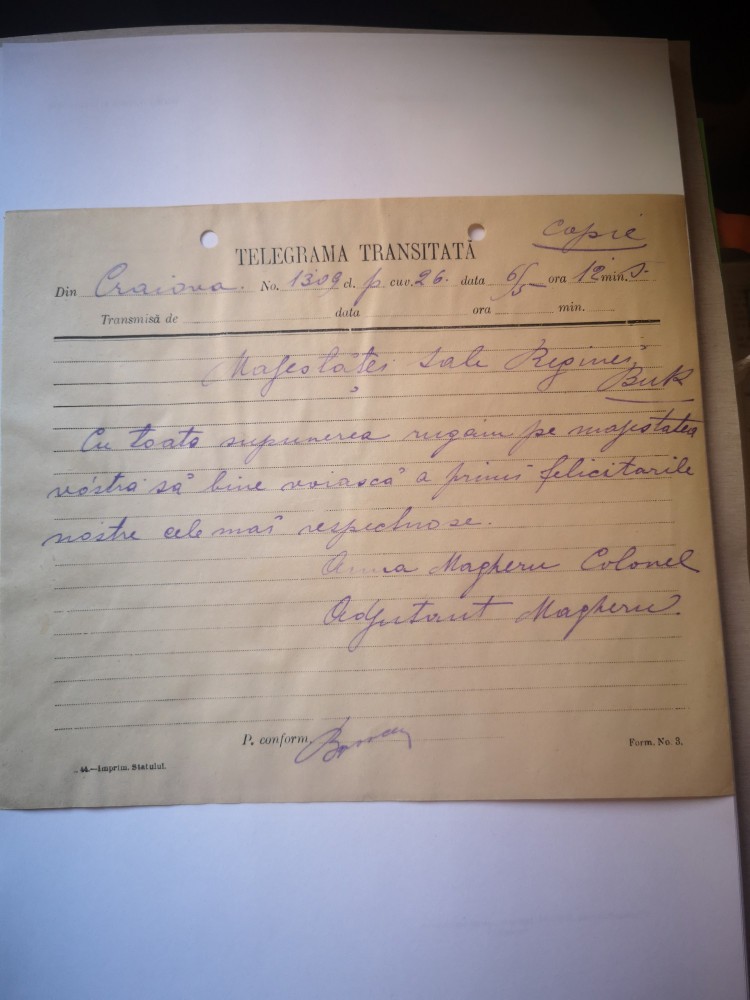 Copie
TELEGRAMA TRANSITATĂ
Din Craiova. No. 1309 cl. p cuv. 26. data 6/5 ora 12 min. 5.
Transmisă de data ora min.
Majestăței Sale Reginei
Buk
Cu toata supunerea rugăm pe majestatea
vóstra să bine voiască a primi felicitarile
nostre cele mai respectuose.
Anna Magheru Colonel
Adjutant Magheru.
P. conform,
Form. No. 3.
44.—Imprim. Statului.